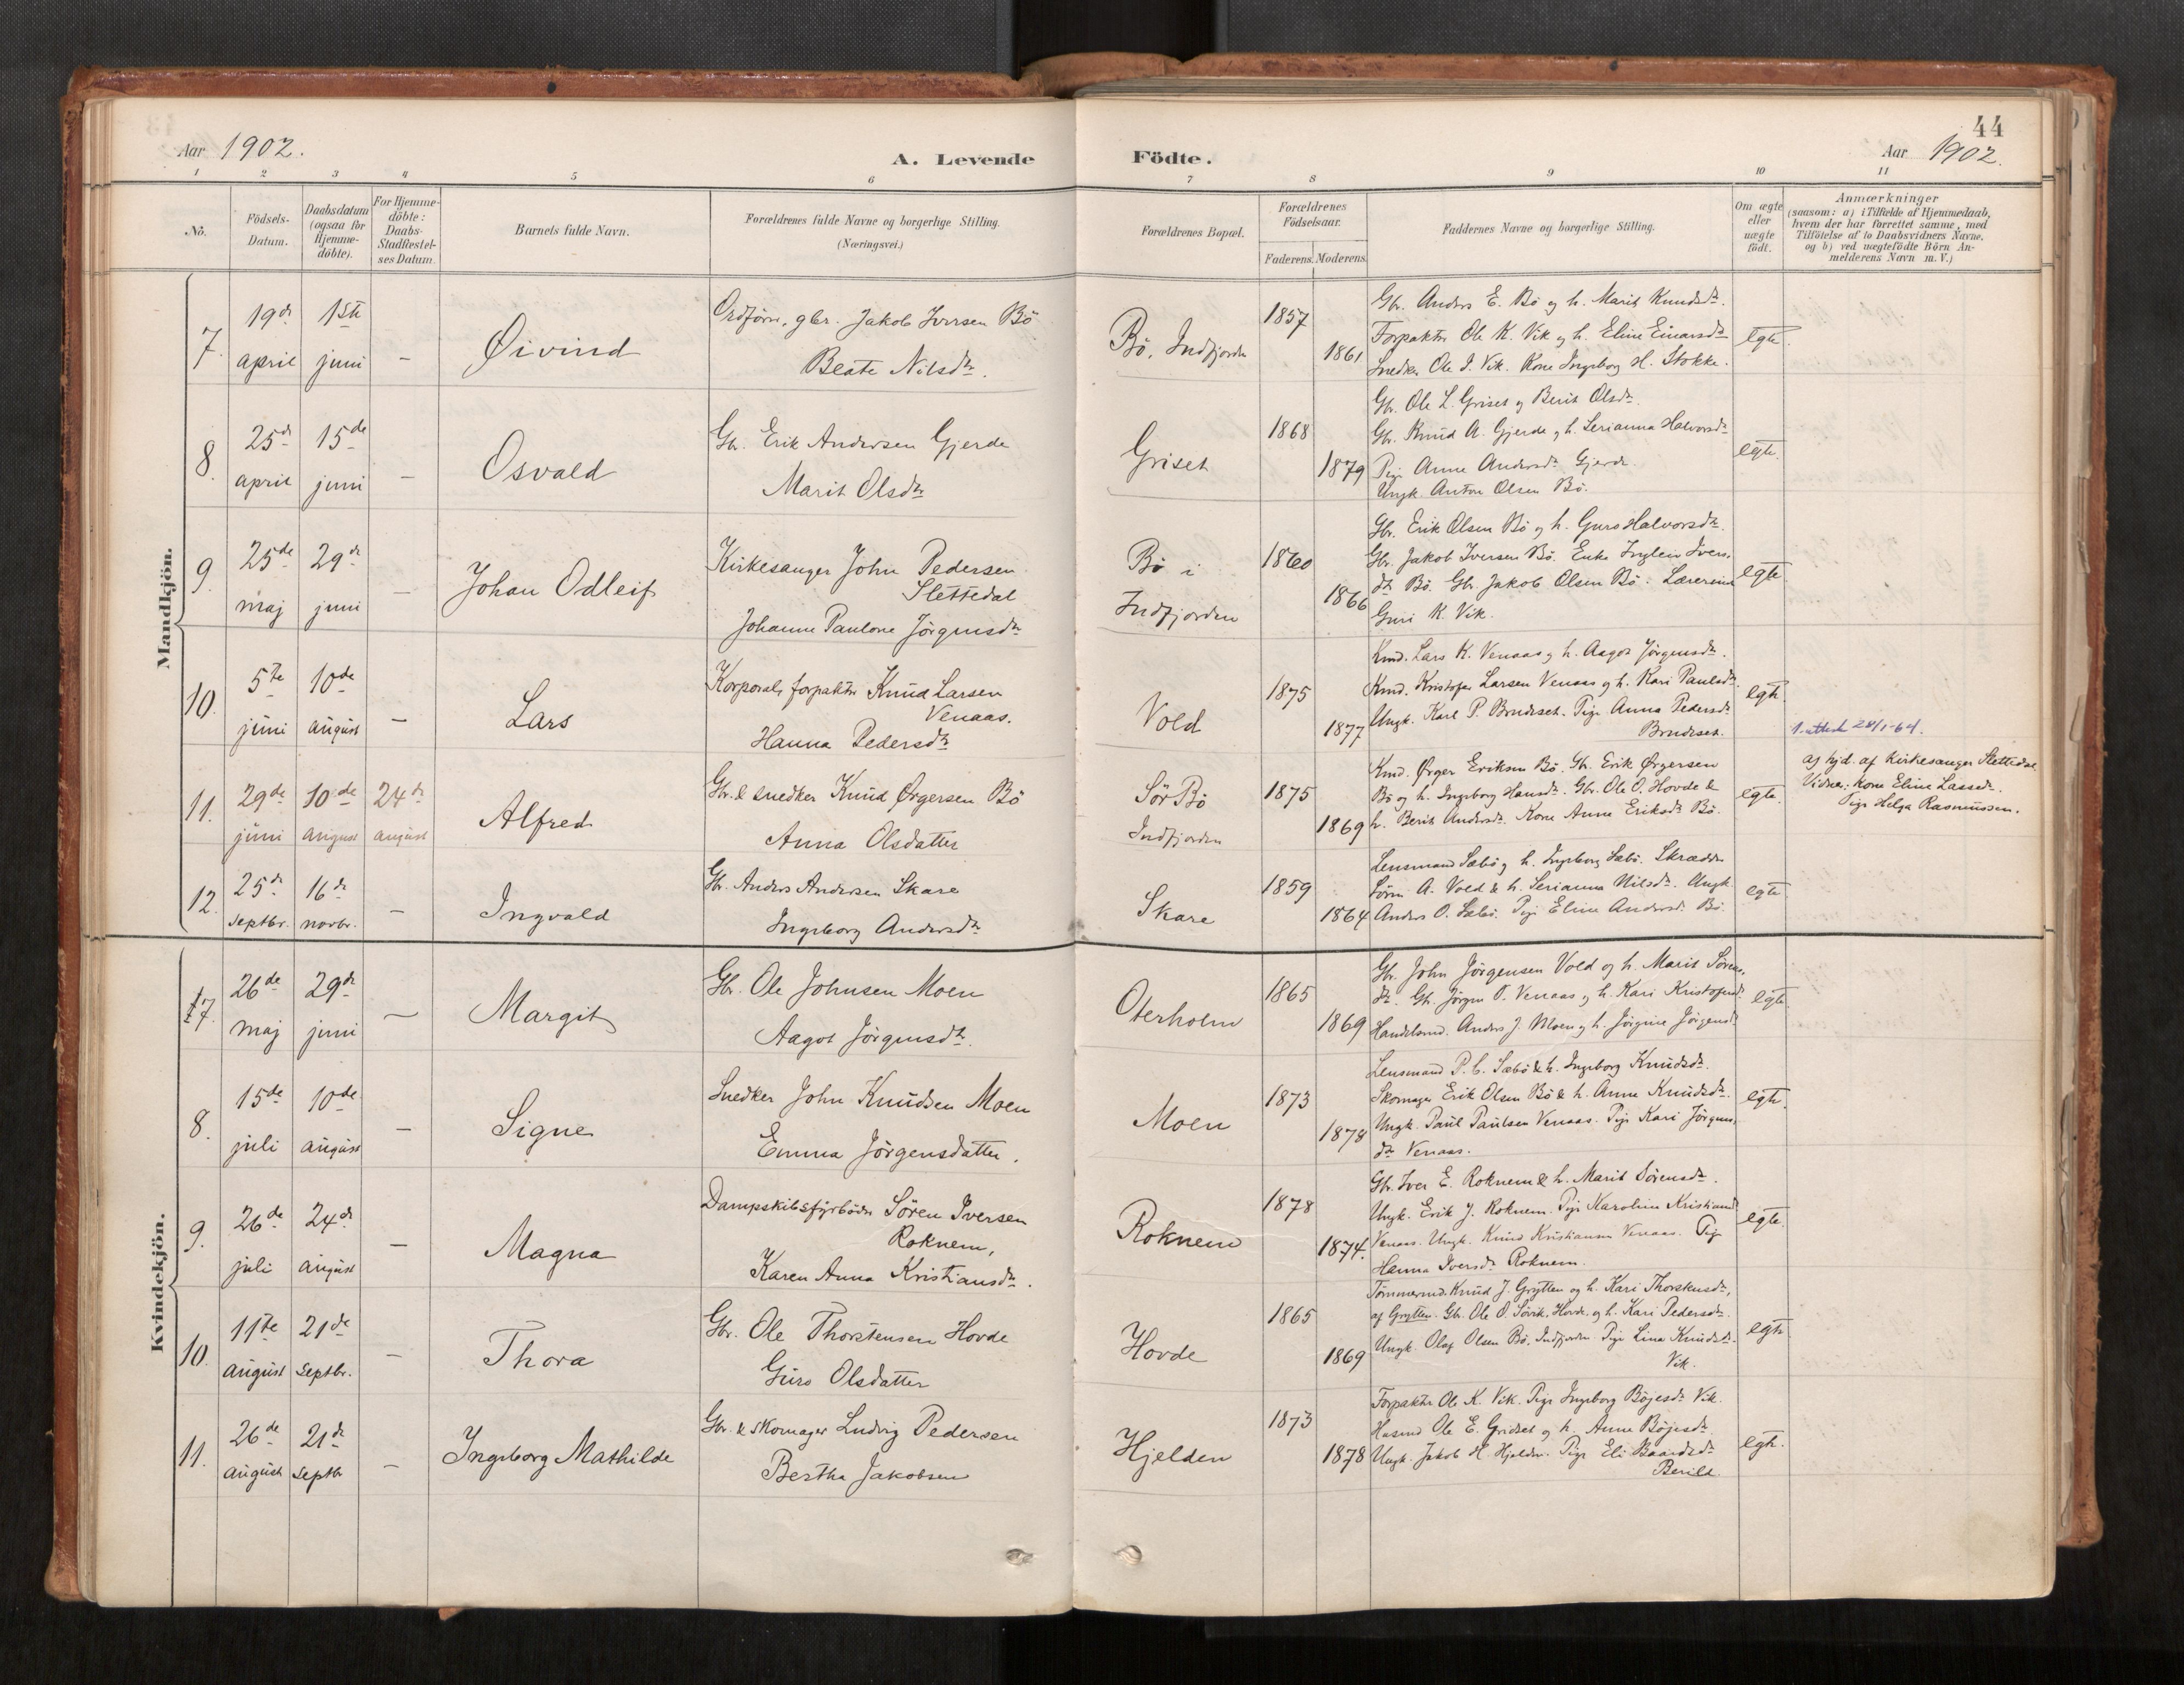 44
Aar 1902.
A. Levende
Födte.
Aar 1902.
1 2 3 4 5 6 7 8 9 10 11
No.
Födsels-Datum.
Daabsdatum (ogsaa for Hjemme-döbte).
For Hjemme-döbte: Daabs-Stadfæstel-ses Datum.
Barnets fulde Navn.
Forældrenes fulde Navne og borgerlige Stilling. (Næringsvei.)
Forældrenes Bopæl.
Forældrenes Födselsaar.
Faderens. Moderens.
Faddernes Navne og borgerlige Stilling.
Om ægte eller uægte födt.
Anmærkninger
(saasom: a) i Tilfælde af Hjemmedaab, hvem der har forrettet samme, med Tilföielse af to Daabsvidners Navne, og b) ved uægtefödte Börn An-melderens Navn m. V.)
Mandkjön.
7. 19de april
1ste juni
-
Øivind
Ordförer, gbr. Jakob Iversen Bö
Beate Nilsdtr.
Bö, Indfjorden
1857
1861
Gbr. Anders E. Bö og h. Marit Knudsdtr.
Forpakter Ole K. Vik og h. Eline Einarsdtr
Snedker Ole I. Vik. Kone Ingeborg H. Stokke.
egte.
8. 25de april
15de juni
-
Osvald
Gbr. Erik Andersen Gjerde
Marit Olsdtr
Griset
1868
1879
Gbr. Ole L. Griset og Berit Olsdtr.
Gbr. Knud A. Gjerde og h. Serianna Halvorsdtr
Pige Anne Andersdtr Gjerde.
Ungk. Anton Olsen Bö.
egte.
9. 25de maj
29de juni
-
Johan Odleif
Kirkesanger John Pedersen
Slettedal
Johanne Pauline Jörgensdtr
Bö i
Indfjorden
1860
1866
Gbr. Erik Olsen Bö og h. Guro Halvorsdtr.
Gbr. Jakob Iversen Bö. Enke Ingleiv Ivers-
dtr Bö. Gbr. Jakob Olsen Bö. Lærerinde
Guri K. Vik.
egte
10. 5te juni
10de august
-
Lars
Korporal, forpakter Knud Larsen
Venaas.
Hanna Pedersdtr
Vold
1875
1877
Kmd. Lars K. Venaas og h. Aagot Jörgensdtr.
Kmd. Kristofer Larsen Venaas og h. Kari Paulsdtr
Ungk. Karl P. Brudeset. Pige Anna Pedersdtr
Brudeset.
egte.
1. attest 28/1-64.
11. 29de juni
10de august
24de august
Alfred
Gbr. & snedker Knud Ørgersen Bö
Anna Olsdatter
Sör Bö
Indfjorden
1875
1869
Kmd. Ørger Eriksen Bö. Gb. Erik Ørgersen
Bö og h. Ingeborg Hansdtr. Gbr. Ole O. Hovde &
h. Berit Andersdtr. Kone Anne Eriksdtr Bö.
egte.
af hjd. af Kirkesanger Slettedal
Vidner: Kone Eline Lassedtr.
Pige Helga Rasmussen.
12. 25de septbr.
16de novbr.
-
Ingvald
Gbr. Anders Andersen Skare
Ingeborg Andersdtr
Skare
1859
1864
Lensmand Sæbö og h. Ingeborg Sæbö. Skrædder
Sören A. Vold & h. Serianna Nilsdtr. Ungk.
Anders O. Sæbö. Pige Eline Andersdtr Bö.
egte
Kvindekjön.
7. 26de maj
29de juni
-
Margit
Gbr. Ole Johnsen Moen
Aagot Jörgensdtr.
Oterholm
1865
1869
Gbr. John Jörgensen Vold og h. Marit Sörens-
dtr. Gbr. Jörgen O. Venaas og h. Kari Kristofersdtr
Handelsmd. Anders J. Moen og h. Jörgine Jörgensdtr
egte.
8. 15de juli
10de august
-
Signe
Snedker John Knudsen Moen
Emma Jörgensdatter.
Moen
1873
1878
Lensmand P. C. Sæbö & h. Ingeborg Knudsdtr.
Skomager Erik Olsen Bö & h. Anne Knudsdtr.
Ungk. Paul Paulsen Venaas. Pige Kari Jörgens-
dtr Venaas.
egte.
9. 26de juli
24de august
-
Magna
Dampskibsfyrböder Sören Iversen
Roknem,
Karen Anna Kristiansdtr.
Roknem
1878
1874.
Gbr. Iver E. Roknem & h. Marit Sörensdtr.
Ungk. Erik J. Roknem. Pige Karoline Kristiansd
Venaas. Ungk. Knud Kristiansen Venaas. Pige
Hanna Iversdtr Roknem.
egte.
10. 11te august
21de septbr.
-
Thora
Gbr. Ole Thorstensen Hovde
Guro Olsdatter
Hovde
1865
1869
Tömmermd. Knud J. Grytten og h. Kari Thorstensdtr,
af Grytten. Gbr. Ole O. Sörvik, Hovde, og h. Kari Pedersdtr.
Ungk. Olaf Olsen Bö, Indfjorden. Pige Lina Knudsdtr
Vik.
egte.
11. 26de august
21de septbr
-
Ingeborg Mathilde
Gbr. & skomager Ludvig Pedersen
Bertha Jakobsen
Hjelden
1873
1878
Forpakter Ole K. Vik. Pige Ingeborg Böjesdtr Vik.
Husmd Ole E. Gridset og h. Anne Böjesdtr.
Ungk. Jakob H. Hjelden. Pige Eli Baardsdtr
Berild.
egte.